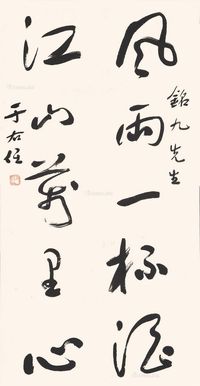 風雨一杯酒
銘九先生
江山萬里心
于右任